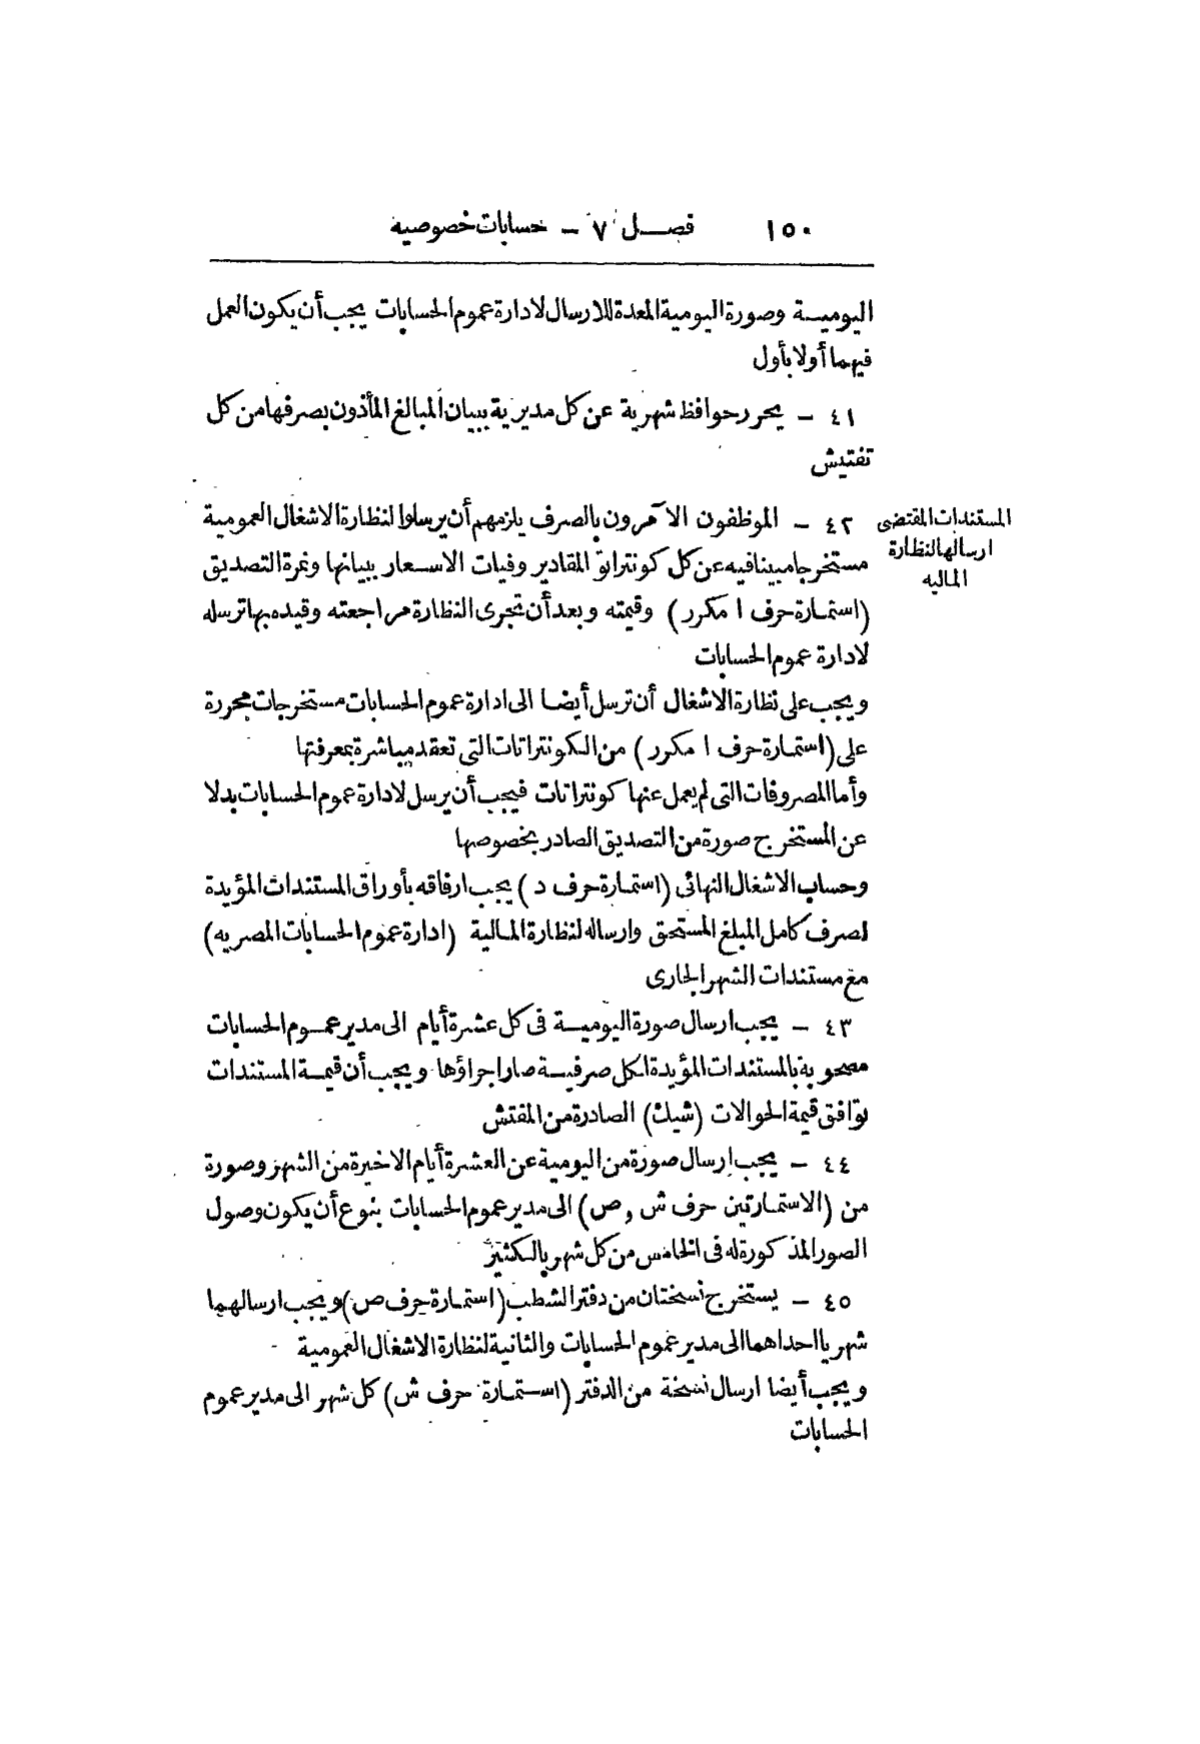 ١٥٠ فصل ٧ – حسابات خصوصيه
اليومية وصورة اليومية المعدة للارسال لادارة عموم الحسابات يجب أن يكون العمل
فيهما أولا بأول
٤١ – يحرر حوافظ شهرية عن كل مديرية ببيان المبالغ المأذون بصرفها من كل
تفتيش
المستندات المقتضى
ارسالها لنظارة
الماليه
٤٢ – الموظفون الآمرون بالصرف يلزمهم أن يرسلوا لنظارة الاشغال العمومية
مستخرجا مبينا فيه عن كل كونتراتو المقادير وفيات الاسعار ببيانها ونمرة التصديق
(استمارة حرف ا مكرر) وقيمته وبعد أن تجرى النظارة مراجعته وقيده بها ترسله
لادارة عموم الحسابات
ويجب على نظارة الاشغال أن ترسل أيضا الى ادارة عموم الحسابات مستخرجات محررة
على (استمارة حرف ا مكرر) من الكونتراتات التى تعقد مباشرة بمعرفتها
وأما المصروفات التى لم يعمل عنها كونتراتات فيجب أن يرسل لادارة عموم الحسابات بدلا
عن المستخرج صورة من التصديق الصادر بخصوصها
وحساب الاشغال النهائى (استمارة حرف د) يجب ارفاقه بأوراق المستندات المؤيدة
لصرف كامل المبلغ المستحق وارساله لنظارة المالية (ادارة عموم الحسابات المصريه)
مع مستندات الشهر الجارى
٤٣ – يجب ارسال صورة اليومية فى كل عشرة أيام الى مدير عموم الحسابات
مصحوبة بالمستندات المؤيدة لكل صرفية صار اجراؤها ويجب أن قيمة المستندات
توافق قيمة الحوالات (شيك) الصادرة من المفتش
٤٤ – يجب ارسال صورة من اليومية عن العشرة أيام الاخيرة من الشهر وصورة
من (الاستمارتين حرف ش , ص) الى مدير عموم الحسابات بنوع أن يكون وصول
الصور المذكورة له فى الخامس من كل شهر بالكثير
٤٥ – يستخرج نسختان من دفتر الشطب (استمارة حرف ص) ويجب ارسالهما
شهريا احداهما الى مدير عموم الحسابات والثانية لنظارة الاشغال العمومية
ويجب أيضا ارسال نسخة من الدفتر (استمارة حرف ش) كل شهر الى مدير عموم
الحسابات